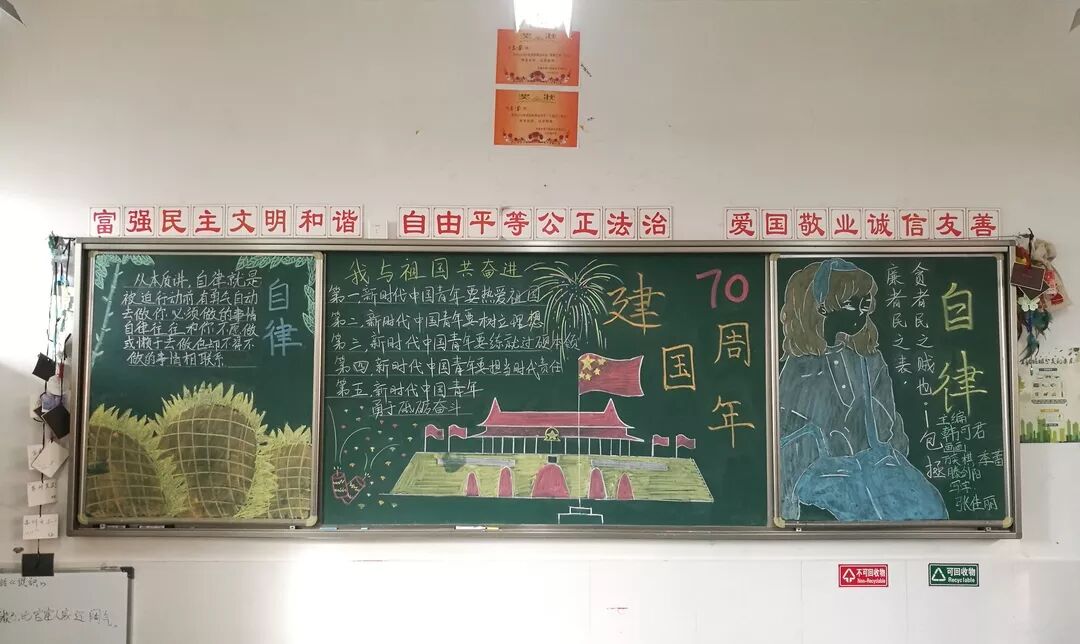 奖状
奖状
富强民主文明和谐
自由平等公正法治
爱国敬业诚信友善
从本质讲,自律就是
被迫行动前有勇气自动
去做你必须做的事情
自律往往和你不愿做
或懒于去做但却不得不
做的事情相联系
自律
我与祖国共奋进
第一,新时代中国青年要热爱祖国
第二,新时代中国青年要树立理想
第三,新时代中国青年要练就过硬本领
第四,新时代中国青年要担当时代责任
第五,新时代中国青年
勇于砥砺奋斗
建国
70周年
廉者民之表,
贪者民之贼也!
包拯
自律
主编
韩可君
画画
李蕾
写字
张佳丽
不可回收物
Non-Recyclable
可回收物
Recyclable